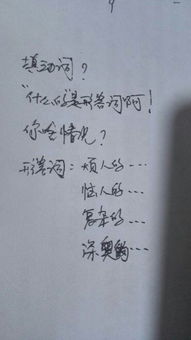 填动词？
“什么的是形容词啊！
你啥情况？
形容词：烦人的…
恼人的…
复杂的…
深奥的…